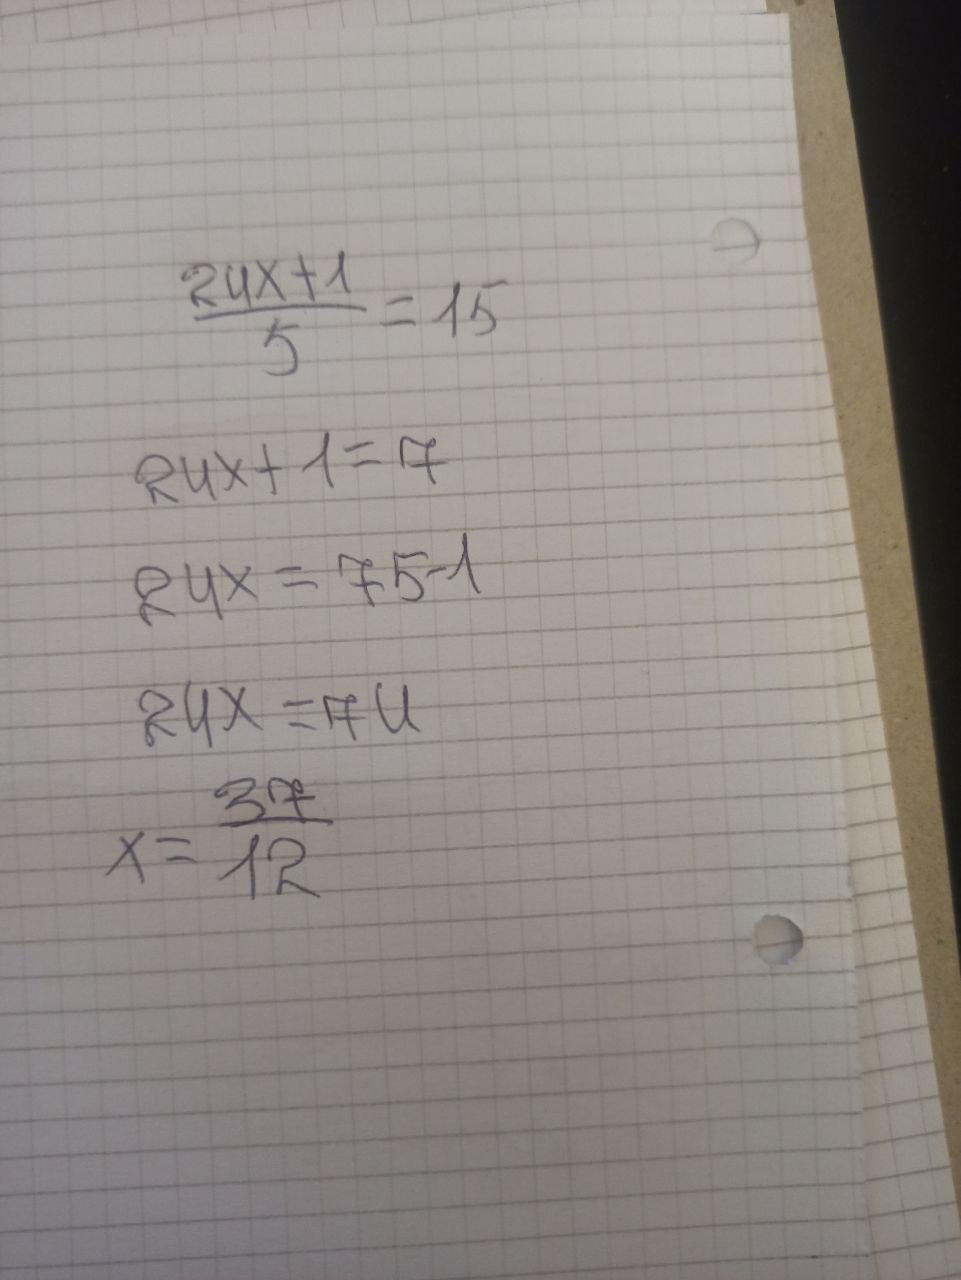 24x+1
5
= 15
24x+1=7
24x = 75-1
24x = 74
x = 37
12